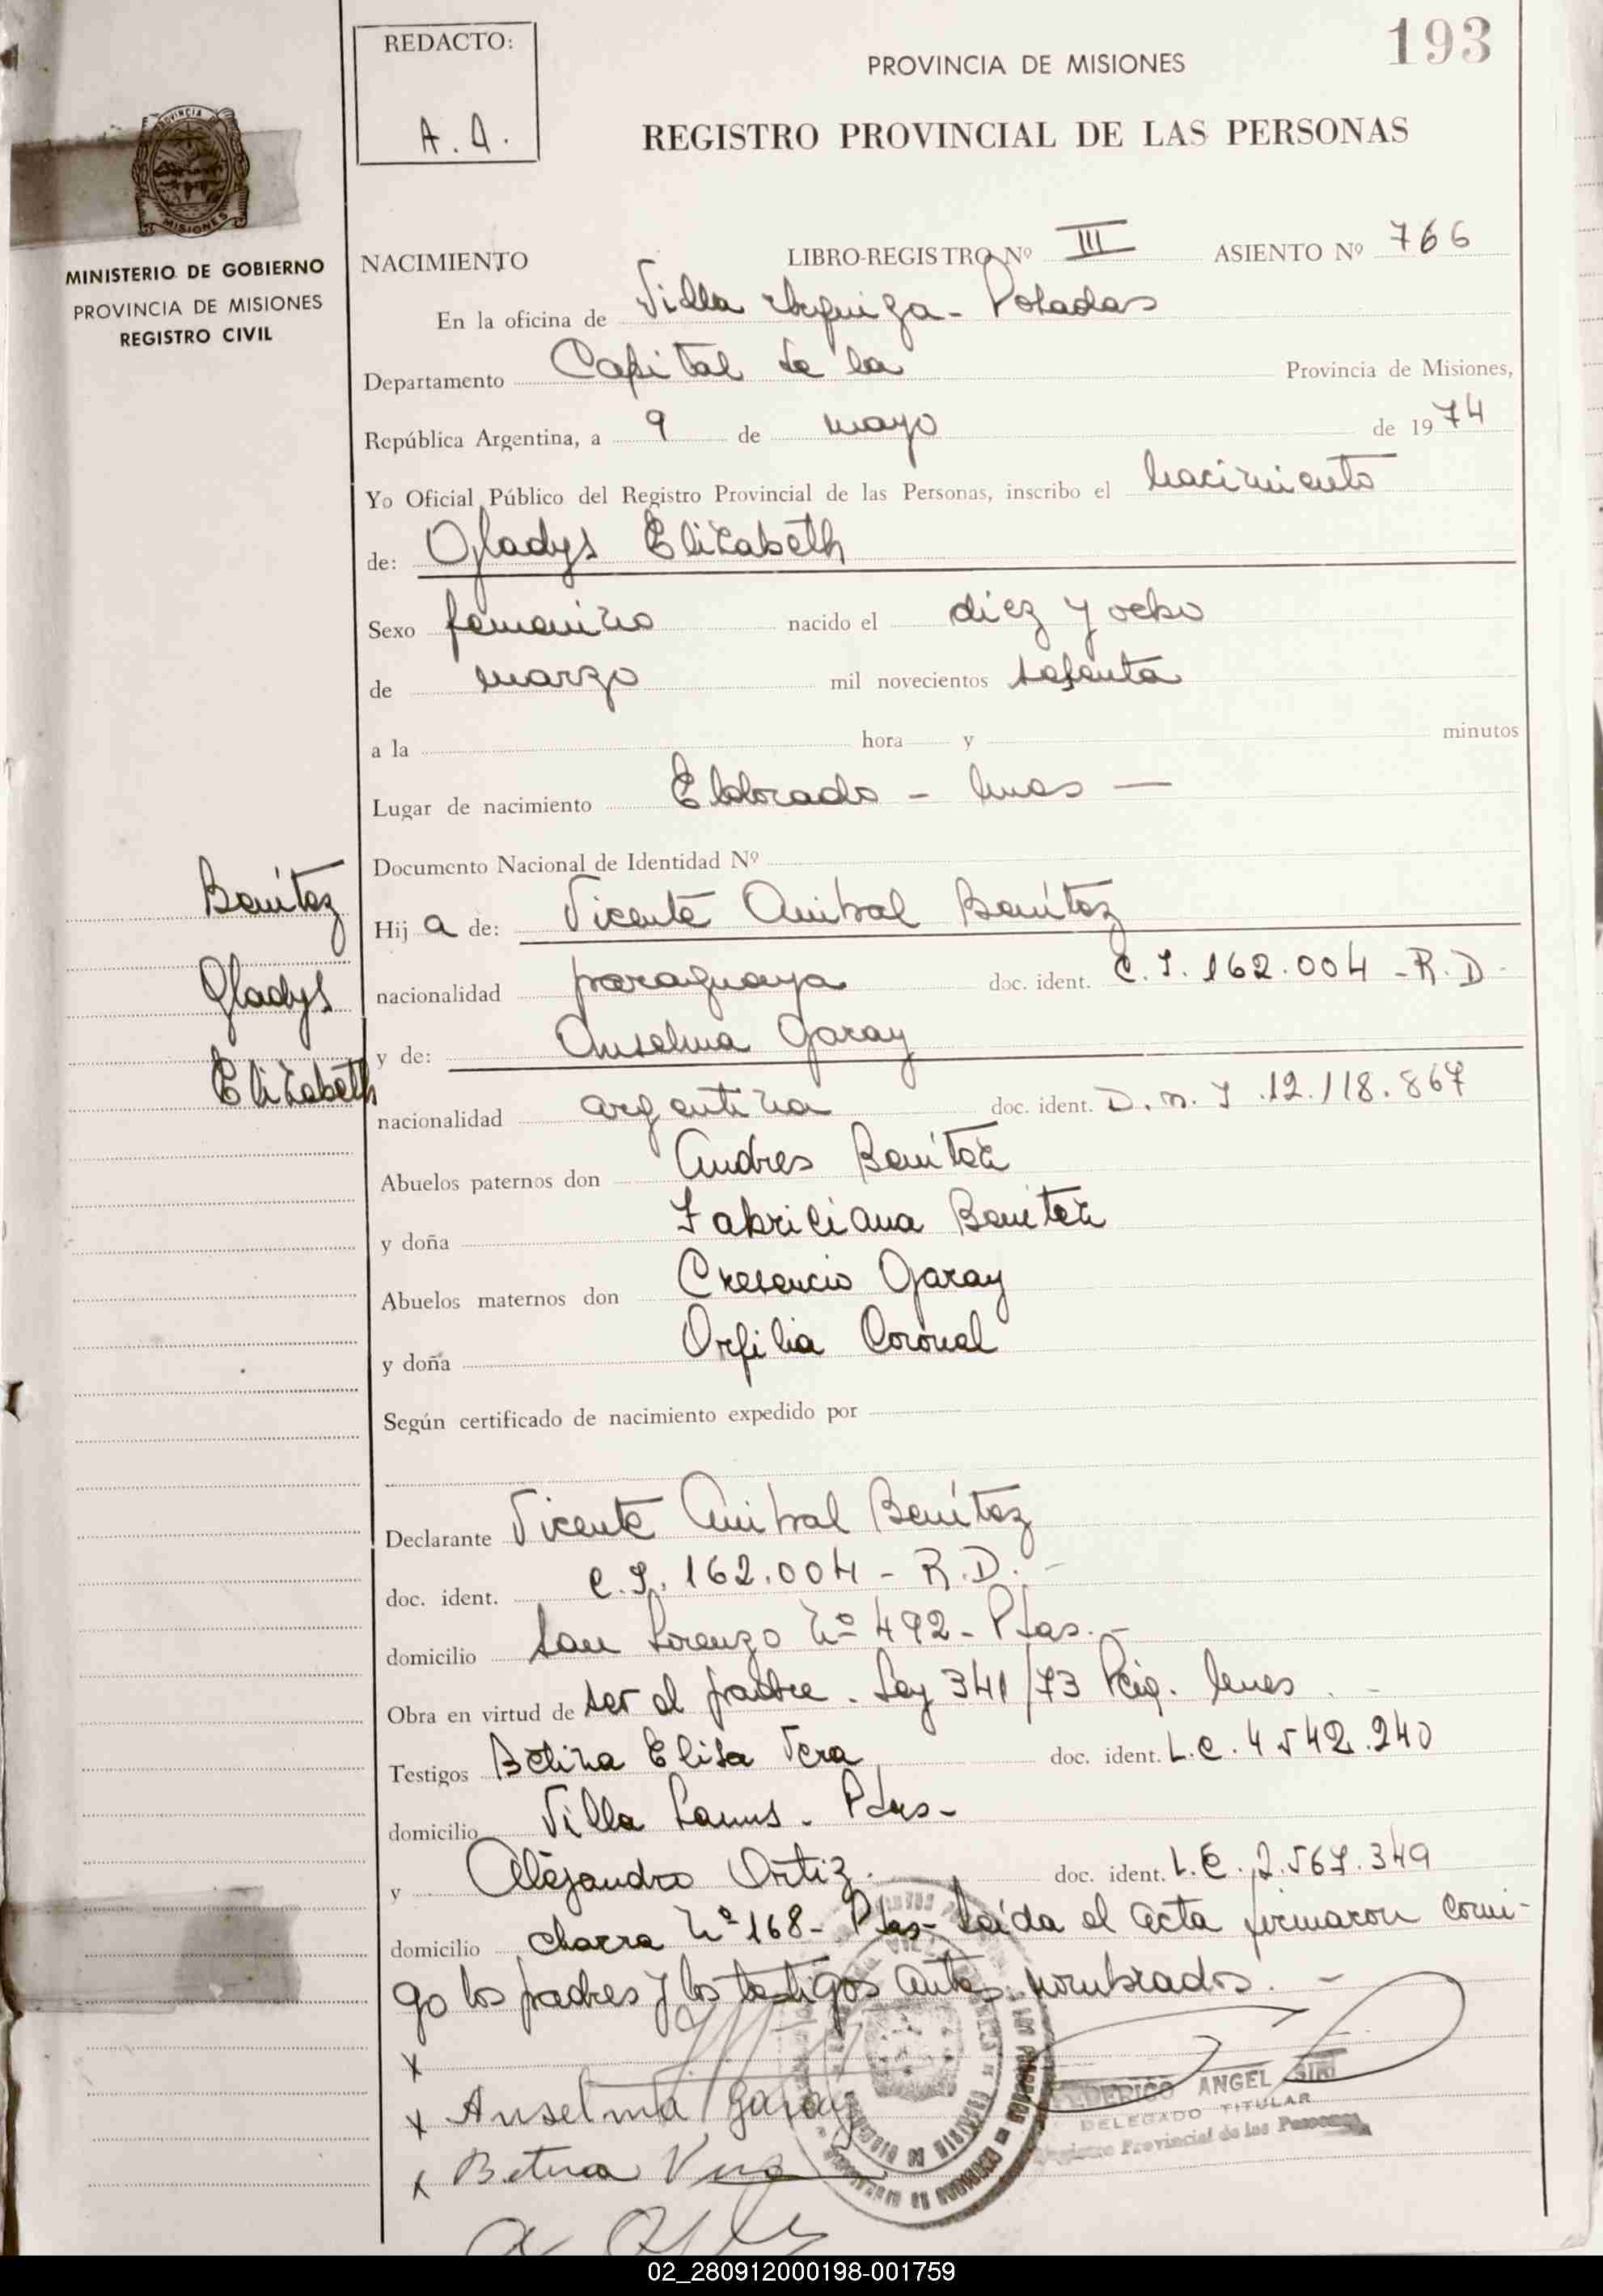 193
REDACTO:
A. A.
PROVINCIA DE MISIONES
REGISTRO PROVINCIAL DE LAS PERSONAS
PROVINCIA DE
MISIONES
MINISTERIO DE GOBIERNO
PROVINCIA DE MISIONES
REGISTRO CIVIL
NACIMIENTO LIBRO-REGISTRO Nº III ASIENTO Nº 766
En la oficina de Villa Urquiza - Posadas
Departamento Capital de la Provincia de Misiones,
República Argentina, a 9 de mayo de 1974
Yo Oficial Público del Registro Provincial de las Personas, inscribo el nacimiento
de: Gladys Elizabeth
Sexo femenino nacido el diez y ocho
de marzo mil novecientos setenta
a la hora y minutos
Lugar de nacimiento Eldorado - Mnes —
Documento Nacional de Identidad Nº
Benítez
Hij a de: Vicente Anibal Benítez
Gladys
nacionalidad paraguaya doc. ident. C. I. 162.004 - R. D -
y de: Anselma Garay
Elizabeth
nacionalidad argentina doc. ident. D. N. I. 12.118.867
Abuelos paternos don Andres Benítez
y doña Fabriciana Benítez
Abuelos maternos don Cresencio Garay
y doña Orfilia Coronel
Según certificado de nacimiento expedido por
Declarante Vicente Anibal Benítez
doc. ident. C. I. 162.004 - R. D. -
domicilio San Lorenzo Nº 492 - Pdas. -
Obra en virtud de ser el padre. Ley 341/73 Pcia. Mnes. -
Testigos Betina Elisa Vera doc. ident. L. C. 4.542.240
domicilio Villa Lanus - Pdas -
y Alejandro Ortiz. doc. ident. L. E. 2.567.349
domicilio chacra Nº 168 - Pdas - Leída el acta firmaron conmi-
go los padres y los testigos antes nombrados. -
x
x Anselma Garay
x Betina Vera
ANGEL
DELEGADO TITULAR
Registro Provincial de las Personas
02_280912000198-001759